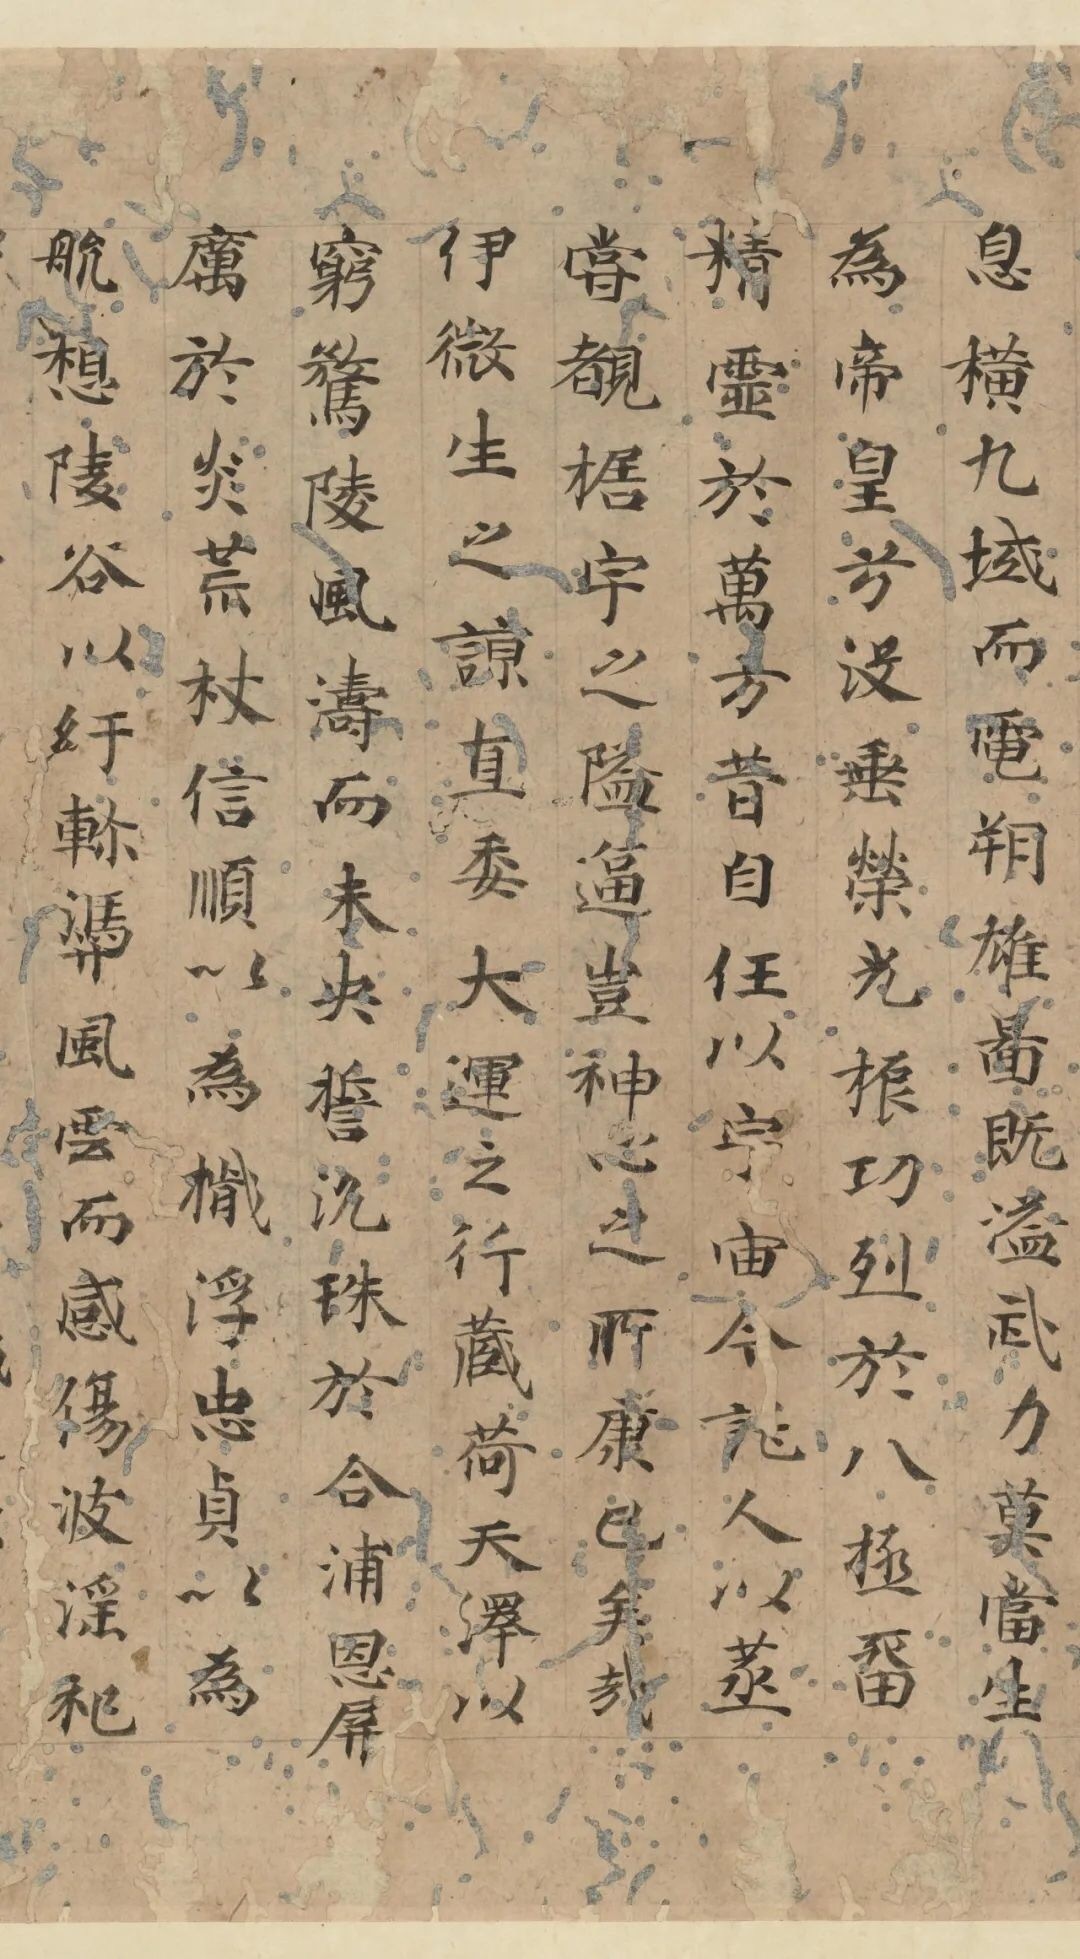 息橫九域而電朔雄啚既溢武力莫當生
為帝皇兮沒垂榮光振功烈於八極留
精靈於萬方昔自任以宇宙今託人以蒸
嘗覩椐宇之隘逼豈神心之所康已矣哉
伊微生之諒直委大運之行藏荷天澤以
窮騖陵風濤而未央誓沉珠於合浦恩屏
厲於炎荒杖信順以為檝浮忠貞以為
航想陵谷以紆軫風雲而感傷波淫祀